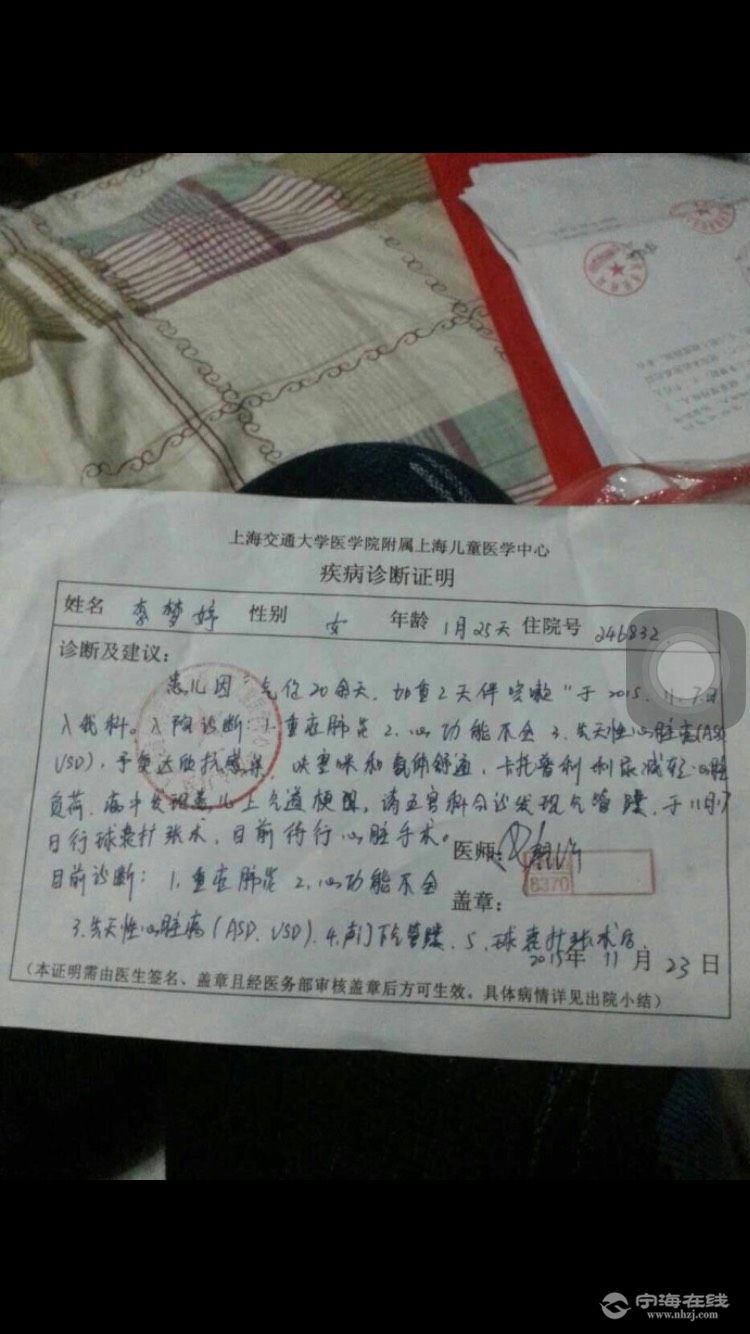 上海交通大学医学院附属上海儿童医学中心
疾病诊断证明
姓名 李梦婷 性别 女 年龄 1月25天 住院号 246832
诊断及建议：
患儿因"气促20余天，加重2天伴咳嗽"于2015.11.7日
入我科。入院诊断：1.重症肺炎 2.心功能不全 3.先天性心脏病(ASD
VSD)，予复达欣抗感染，呋塞米和 卡托普利利尿减轻心脏
负荷，病中发现患儿上气道梗阻，请五官科会诊发现气管 ，于11月17
日行球囊扩张术，目前待行心脏手术。
医师：
目前诊断：1.重症肺炎 2.心功能不全
8370
盖章：
3.先天性心脏病(ASD、VSD) 4.声门下 5.球囊扩张术后
2015年 11 月 23 日
(本证明需由医生签名、盖章且经医务部审核盖章后方可生效。具体病情详见出院小结)
宁海在线
www.nhzj.com